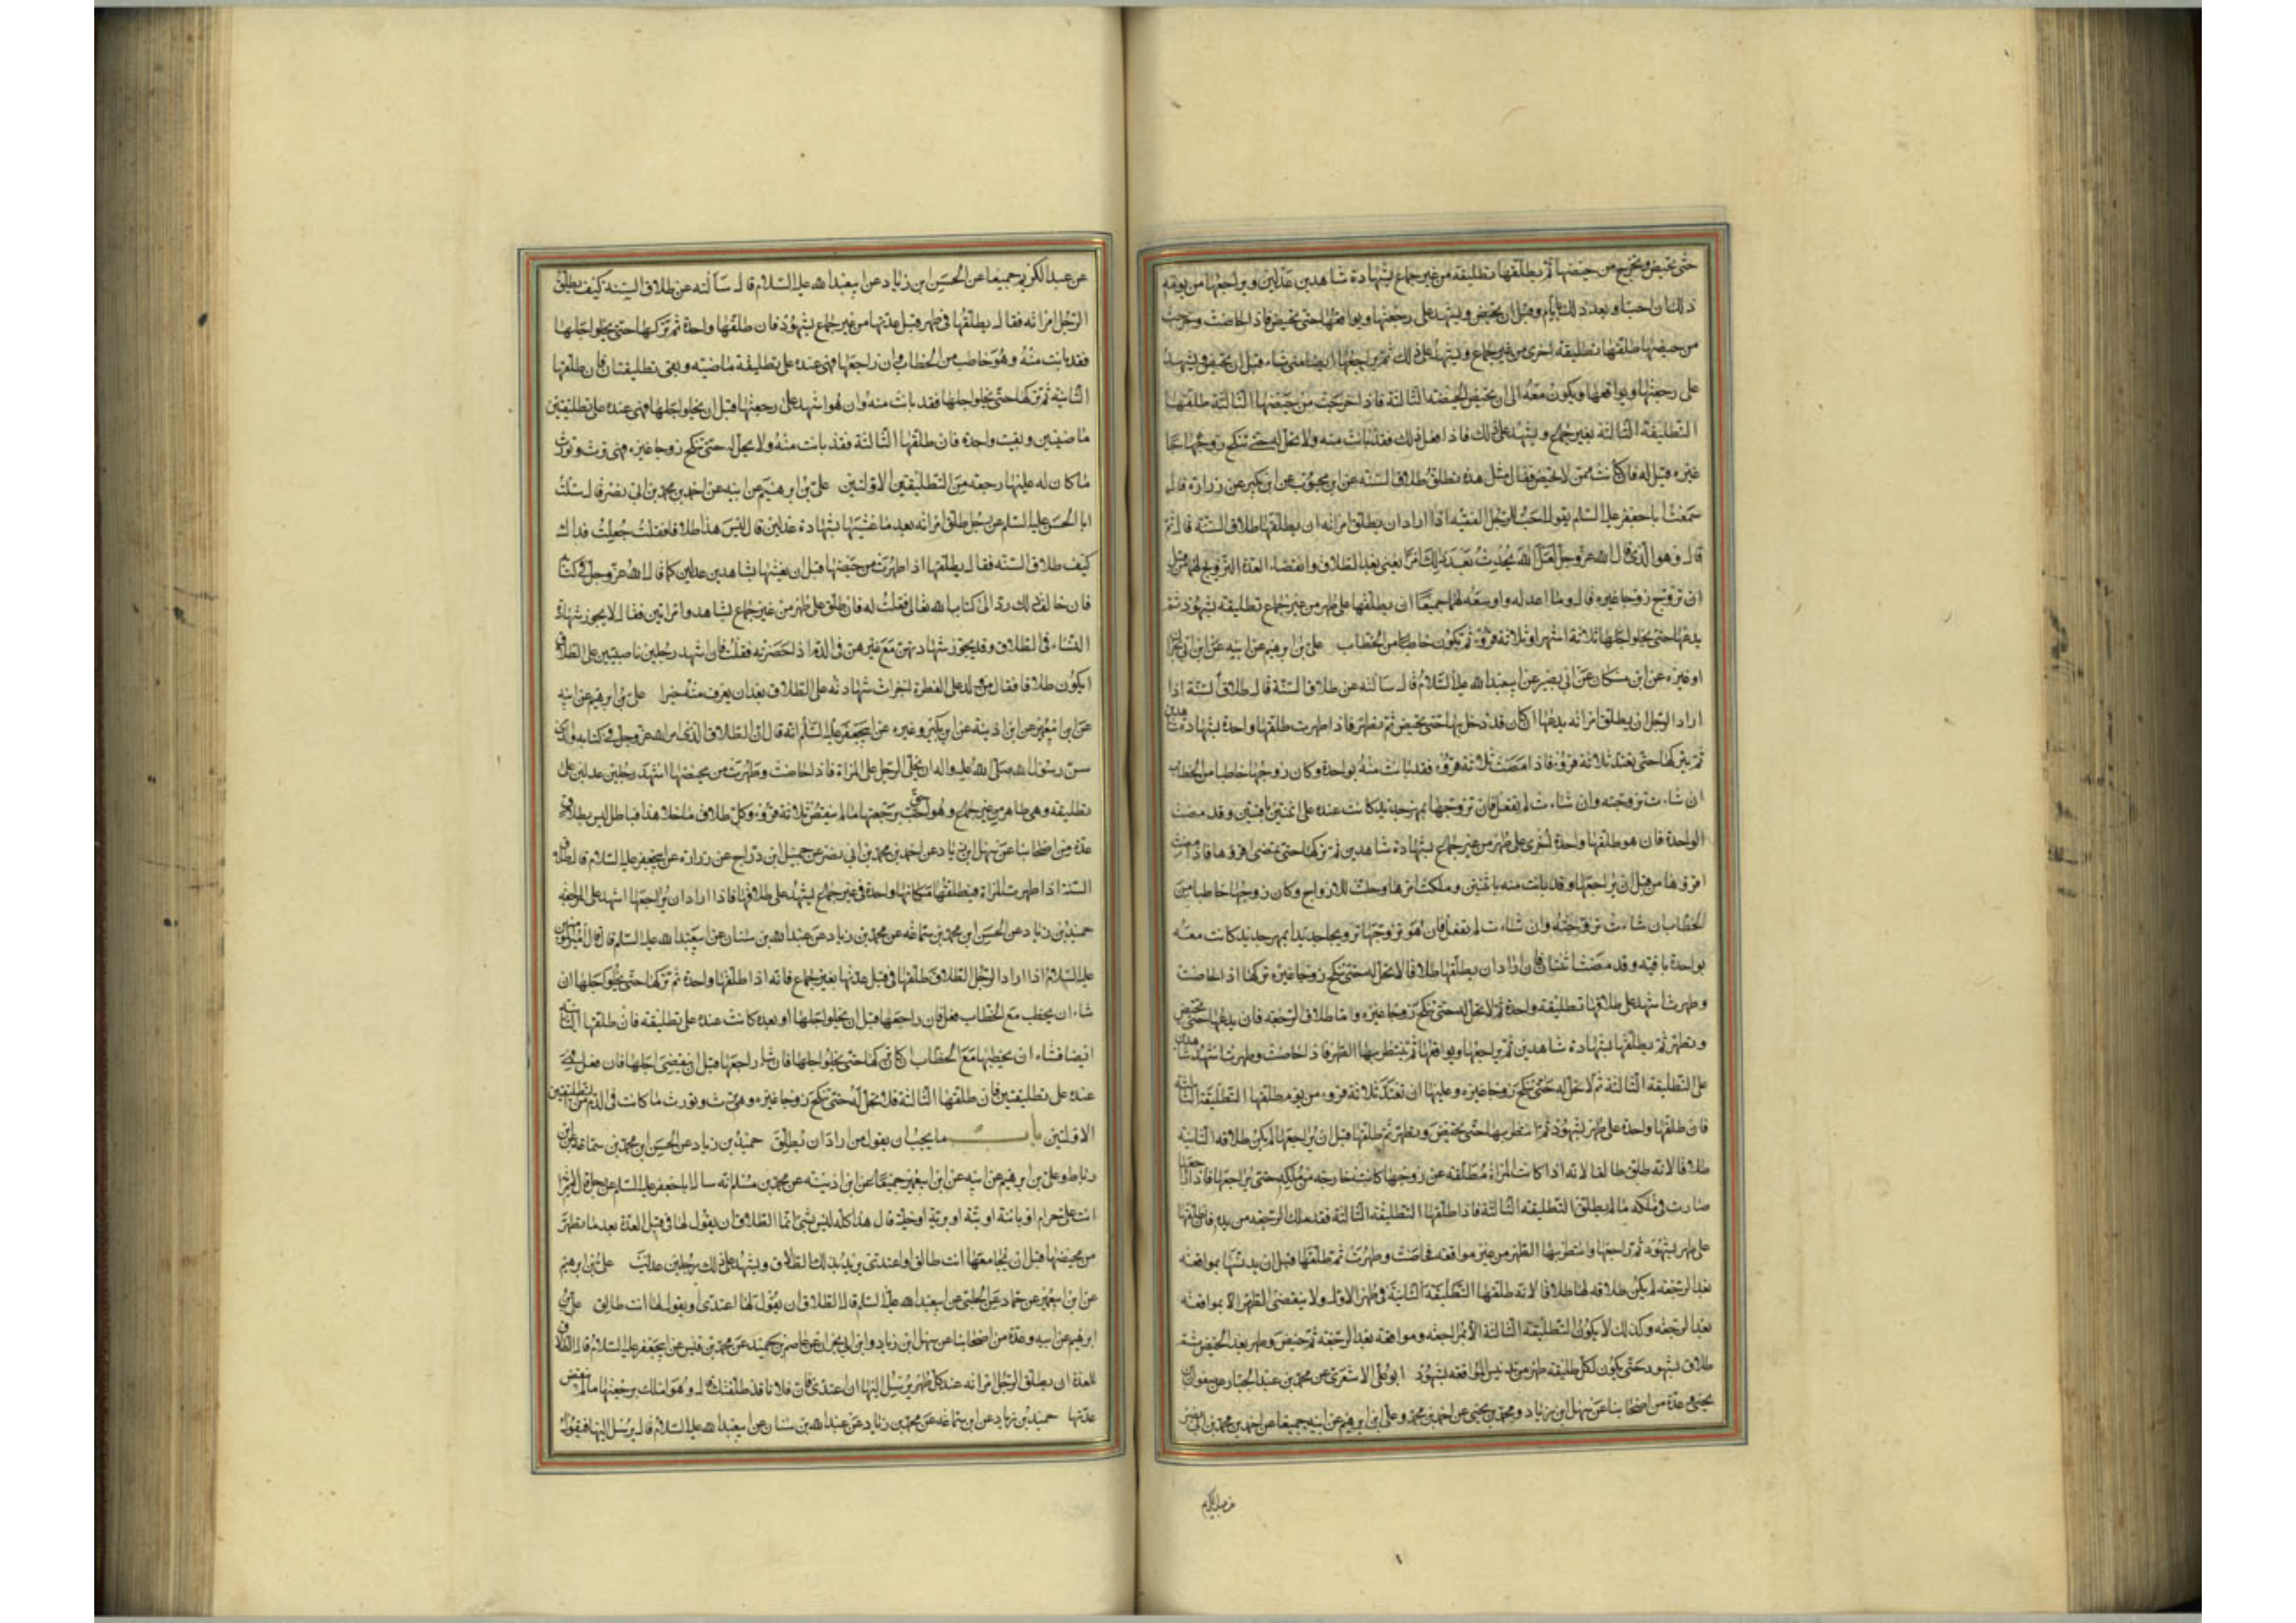 حتى تحيض وتخرج من حيضها ثم يطلقها تطليقة من غير جماع بشهادة شاهدين عدلين ويراجعها من يومه
ذلك ان احب او بعد ذلك بايام وقبل ان تحيض ويشهد على رجعتها ويواقعها حتى تحيض فاذا حاضت وخرجت
من حيضها طلقها تطليقة اخرى من غير جماع ويشهد على ذلك ثم يراجعها ايضا متى شاء قبل ان تحيض ويشهد
على رجعتها ويواقعها ويكون معه الى ان تحيض الحيضة الثالثة فاذا خرجت من حيضتها الثالثة طلقها
التطليقة الثالثة بغير جماع ويشهد على ذلك فاذا فعل ذلك فقد بانت منه ولا تحل له حتى تنكح زوجا
غيره قيل له فان كانت ممن لا تحيض فقال مثل هذه تطلق طلاق السنة عن ابن محبوب عن ابن بكير عن زرارة قال
سمعت ابا جعفر عليه السلام يقول احب للرجل الفقيه اذا اراد ان يطلق امراته ان يطلقها طلاق السنة قال ثم
قال وهو الذي قال الله عز وجل لعل الله يحدث بعد ذلك امرا يعني بعد الطلاق وانقضاء العدة التزويج لهما من قبل
ان تزوج زوجا غيره قال وما اعدله واوسعه لهما جميعا ان يطلقها على طهر من غير جماع تطليقة بشهود ثم
يدعها حتى يخلو اجلها ثلاثة اشهر او ثلاثة قروء ثم يكون خاطبا من الخطاب علي بن ابرهيم عن ابيه عن ابن ابي نجران
او غيره عن ابن مسكان عن ابي بصير عن ابيعبد الله عليه السلام قال سالته عن طلاق السنة قال طلاق السنة اذا
اراد الرجل ان يطلق امراته يدعها ان كان قد دخل بها حتى تحيض ثم تطهر فاذا طهرت طلقها واحدة بشهادة شاهدين
ثم يتركها حتى تعتد ثلاثة قروء فاذا مضت ثلاثة قروء فقد بانت منه بواحدة وكان زوجها خاطبا من الخطاب
ان شاءت تزوجته وان شاءت لم تفعل فان تزوجها بمهر جديد كانت عنده على اثنتين باقيتين وقد مضت
الواحدة فان هو طلقها واحدة اخرى على طهر من غير جماع بشهادة شاهدين ثم تركها حتى تمضي اقرؤها فاذا مضت
اقرؤها من قبل ان يراجعها وقد بانت منه باثنتين وملكت امرها وحلت للازواج وكان زوجها خاطبا من
الخطاب ان شاءت تزوجته وان شاءت لم تفعل فان هو تزوجها تزويجا جديدا بمهر جديد كانت معه
بواحدة باقية وقد مضت اثنتان فان اراد ان يطلقها طلاقا لا تحل له حتى تنكح زوجا غيره تركها اذا حاضت
وطهرت اشهد على طلاقها تطليقة واحدة ثم لا تحل له حتى تنكح زوجا غيره واما طلاق الرجعة فان يدعها حتى تحيض
وتطهر ثم يطلقها بشهادة شاهدين ثم يراجعها ويواقعها ثم ينتظر بها الطهر فاذا حاضت وطهرت اشهد شاهدين
على التطليقة الثالثة ثم لا تحل له حتى تنكح زوجا غيره وعليها ان تعتد ثلاثة قروء من يوم طلقها التطليقة الثالثة
فان طلقها واحدة على طهر بشهود ثم انتظر بها حتى تحيض وتطهر ثم طلقها قبل ان يراجعها لم يكن طلاقه الثانية
طلاقا لانه طلق طالقا لانه اذا كانت المراة مطلقة عن زوجها كانت خارجة من ملكه حتى يراجعها فاذا راجعها
صارت في ملكه ما لم يطلق التطليقة الثالثة فاذا طلقها التطليقة الثالثة فقد ملك الرجعة من يده فان طلقها
على طهر بشهود ثم راجعها وانتظر بها الطهر من غير مواقعة فحاضت وطهرت ثم طلقها قبل ان يدنسها بمواقعة
بعد الرجعة لم يكن طلاقه لها طلاقا لانه طلقها التطليقة الثانية في طهر الاولى ولا ينقضي الطهر الا بمواقعة
بعد الرجعة وكذلك لا يكون التطليقة الثالثة الا بمراجعة ومواقعة بعد الرجعة ثم حيض وطهر بعد الحيض ثم
طلاق بشهود حتى يكون لكل تطليقة طهر من تدنيس المواقعة بشهود ابو علي الاشعري عن محمد بن عبد الجبار عن صفوان بن
يحيى وعدة من اصحابنا عن سهل ابن زياد ومحمد بن يحيى عن احمد بن محمد وعلي ابن ابرهيم عن ابيه جميعا عن احمد بن محمد بن ابي نصر
عن عبد الكريم جميعا عن الحسن ابن زياد عن ابيعبد الله عليه السلام قال سالته عن طلاق السنة كيف يطلق
الرجل امراته فقال يطلقها في طهر قبل عدتها من غير جماع بشهود فان طلقها واحدة ثم تركها حتى يخلو اجلها
فقد بانت منه وهو خاطب من الخطاب وان راجعها فهي عنده على تطليقة ماضية وبقي تطليقتان فان طلقها
الثانية ثم تركها حتى يخلو اجلها فقد بانت منه وان هو اشهد على رجعتها قبل ان يخلو اجلها فهي عنده على تطليقتين
ماضيتين وبقيت واحدة فان طلقها الثالثة فقد بانت منه ولا تحل له حتى تنكح زوجا غيره وهي ترث وتورث
ما كان له عليها رجعة من التطليقتين الاولتين علي بن ابرهيم عن ابيه عن احمد بن محمد بن ابي نصر قال سئلت
ابا الحسن عليه السلام عن رجل طلق امراته بعد ما غشيها بشهادة عدلين قال ليس هذا طلاقا فقلت جعلت فداك
كيف طلاق السنة فقال يطلقها اذا طهرت من حيضها قبل ان يغشيها بشاهدين عدلين كما قال الله عز وجل في كتابه
فان خالف ذلك رد الى كتاب الله فقلت له فان طلق على طهر من غير جماع بشاهد وامراتين فقال لا يجوز شهادة
النساء في الطلاق وقد يجوز شهادتهن مع غيرهن في الدم اذا حضرته فقلت فان اشهد رجلين ناصبيين على الطلاق
ايكون طلاقا فقال من ولد على الفطرة اجيزت شهادته على الطلاق بعد ان يعرف منه خيرا علي بن ابرهيم عن ابيه
عن ابن ابيعمير عن ابن اذينة عن ابن بكير وغيره عن ابيجعفر عليه السلام انه قال ان الطلاق الذي امر الله عز وجل في كتابه والذي
سن رسول الله صلى الله عليه واله ان يخلي الرجل على المراة فاذا حاضت وطهرت من محيضها اشهد رجلين عدلين على
تطليقة وهي طاهر من غير جماع وهو احق برجعتها ما لم تنقض ثلاثة قروء وكل طلاق ما خلا هذا فباطل ليس بطلاق
عدة من اصحابنا عن سهل ابن زياد عن احمد بن محمد بن ابي نصر عن جميل ابن دراج عن زرارة عن ابيجعفر عليه السلام قال طلاق
السنة اذا طهرت المراة فيطلقها مكانها واحدة في غير جماع يشهد على طلاقها فاذا اراد ان يراجعها اشهد على المراجعة
حميد بن زياد عن الحسن ابن محمد بن سماعه عن محمد بن زياد عن عبد الله بن سنان عن ابيعبد الله عليه السلم قال قال امير المؤمنين
عليه السلام اذا اراد الرجل الطلاق طلقها في قبل عدتها بغير جماع فانه اذا طلقها واحدة ثم تركها حتى يخلو اجلها ان
شاء ان يخطب مع الخطاب فعل فان راجعها قبل ان يخلو اجلها او بعده كانت عنده على تطليقة فان طلقها الثانية
ايضا فشاء ان يخطبها مع الخطاب ان كان تركها حتى يخلو اجلها فان شاء راجعها قبل ان ينقضي اجلها فان فعل فهي
عنده على تطليقتين فان طلقها الثالثة فلا تحل له حتى تنكح زوجا غيره وهي ترث وتورث ما كانت في الدم من التطليقتين
الاولتين باب ما يجب ان يقول من اراد ان يطلق حميد بن زياد عن الحسن ابن محمد بن سماعة عن ابن
رباط وعلي بن ابرهيم عن ابيه عن ابن ابيعمير جميعا عن ابن اذينه عن محمد بن مسلم انه سال ابا جعفر عليه السلم عن رجل قال لامراته
انت علي حرام او بائنة او بتة او برية او خلية قال هذا كله ليس بشي انما الطلاق ان يقول لها في قبل العدة بعد ما تطهر
من محيضها قبل ان يجامعها انت طالق او اعتدي يريد بذلك الطلاق ويشهد على ذلك رجلين عدلين علي بن ابرهيم
عن ابن ابيعمير عن حماد عن الحلبي عن ابيعبد الله عليه السلم قال الطلاق ان يقول لها اعتدي او يقول لها انت طالق علي بن
ابرهيم عن ابيه وعدة من اصحابنا عن سهل ابن زياد وابن ابي نجران عن عاصم بن حميد عن محمد بن قيس عن ابيجعفر عليه السلام قال الطلاق
للعدة ان يطلق الرجل امراته عند كل طهر يرسل اليها ان اعتدي فان فلانا قد طلقك قال وهو املك برجعتها ما لم تنقض
عدتها حميد بن زياد عن ابن سماعه عن محمد بن زياد عن عبد الله بن سنان عن ابيعبد الله عليه السلام قال يرسل اليها فيقول